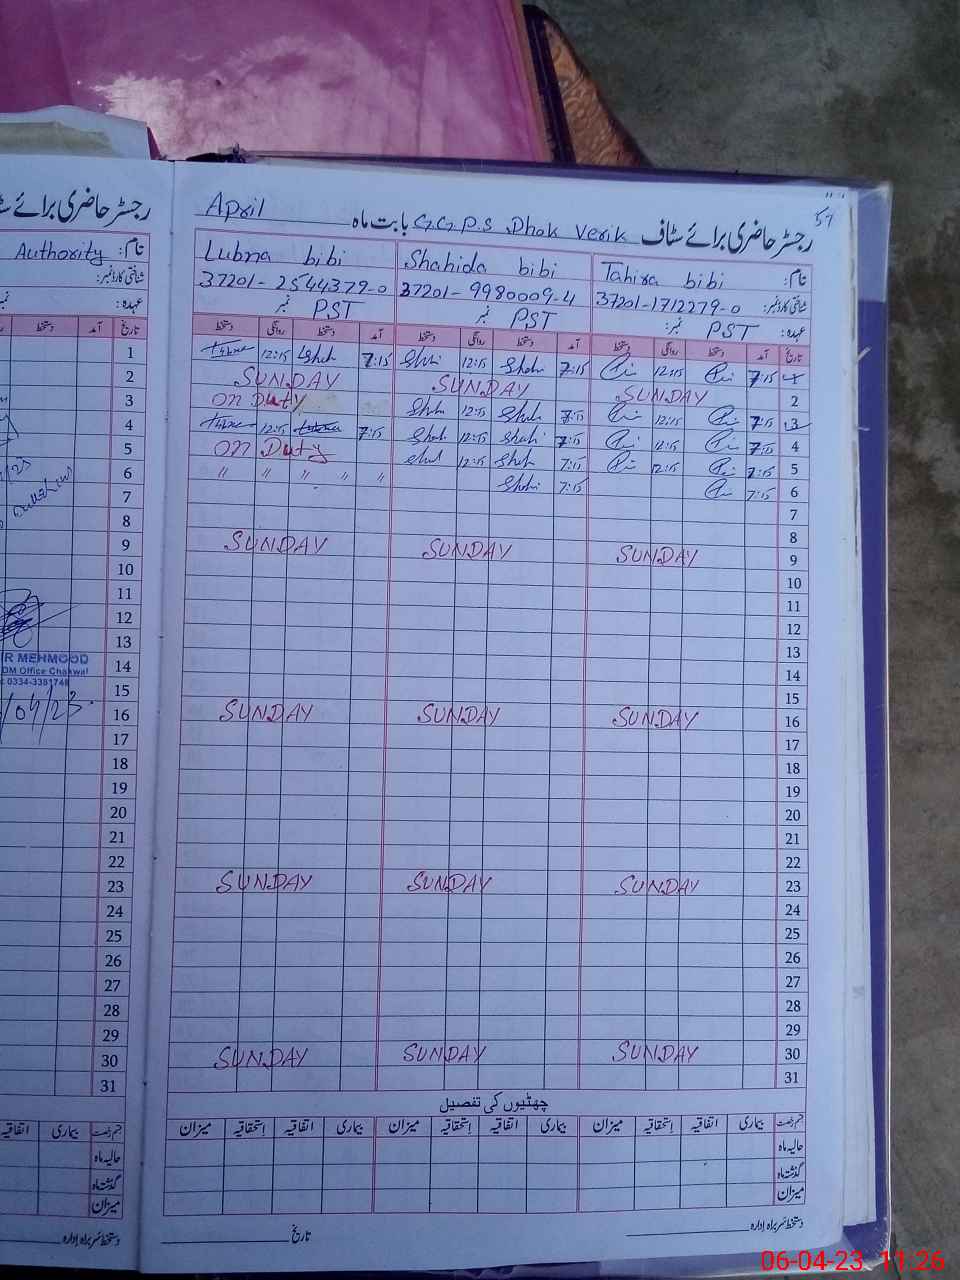 رجسٹر حاضری برائے سٹاف G.G.P.S Dhok Verik بابت ماہ April
57
نام: Tahira bibi Shahida bibi Lubna bibi
شناختی کارڈ نمبر: 37201-1712279-0 37201-9980009-4 37201-2544379-0
عہدہ: PST نمبر: PST نمبر PST نمبر
تاریخ آمد دستخط روانگی دستخط آمد دستخط روانگی دستخط آمد دستخط روانگی دستخط
1 7:15 12:15 7:15 12:15 7:15 12:15
2 SUNDAY SUNDAY SUNDAY
3 7:15 12:15 7:15 12:15 on Duty
4 7:15 12:15 7:15 12:15 7:15 12:15
5 7:15 12:15 7:15 12:15 on Duty
6 7:15 7:15 " " " " "
7
8
9 SUNDAY SUNDAY SUNDAY
10
11
12
13
14
15
16 SUNDAY SUNDAY SUNDAY
17
18
19
20
21
22
23 SUNDAY SUNDAY SUNDAY
24
25
26
27
28
29
30 SUNDAY SUNDAY SUNDAY
31
چھٹیوں کی تفصیل
بیماری اتفاقیہ استحقاقیہ میزان بیماری اتفاقیہ استحقاقیہ میزان بیماری اتفاقیہ استحقاقیہ میزان
حالیہ ماہ
گذشتہ ماہ
میزان
دستخط سربراہ ادارہ
تاریخ
رجسٹر حاضری برائے
نام: Authority
شناختی کارڈ نمبر:
عہدہ:
تاریخ آمد دستخط
1
2
3
4
5
6
7
8
9
10
11
12
13
R MEHMOOD
14
DM Office Chakwal
0334-3381748
15
/04/23
16
17
18
19
20
21
22
23
24
25
26
27
28
29
30
31
بیماری اتفاقیہ
حالیہ ماہ
گذشتہ ماہ
میزان
دستخط سربراہ ادارہ
06-04-23 11:26